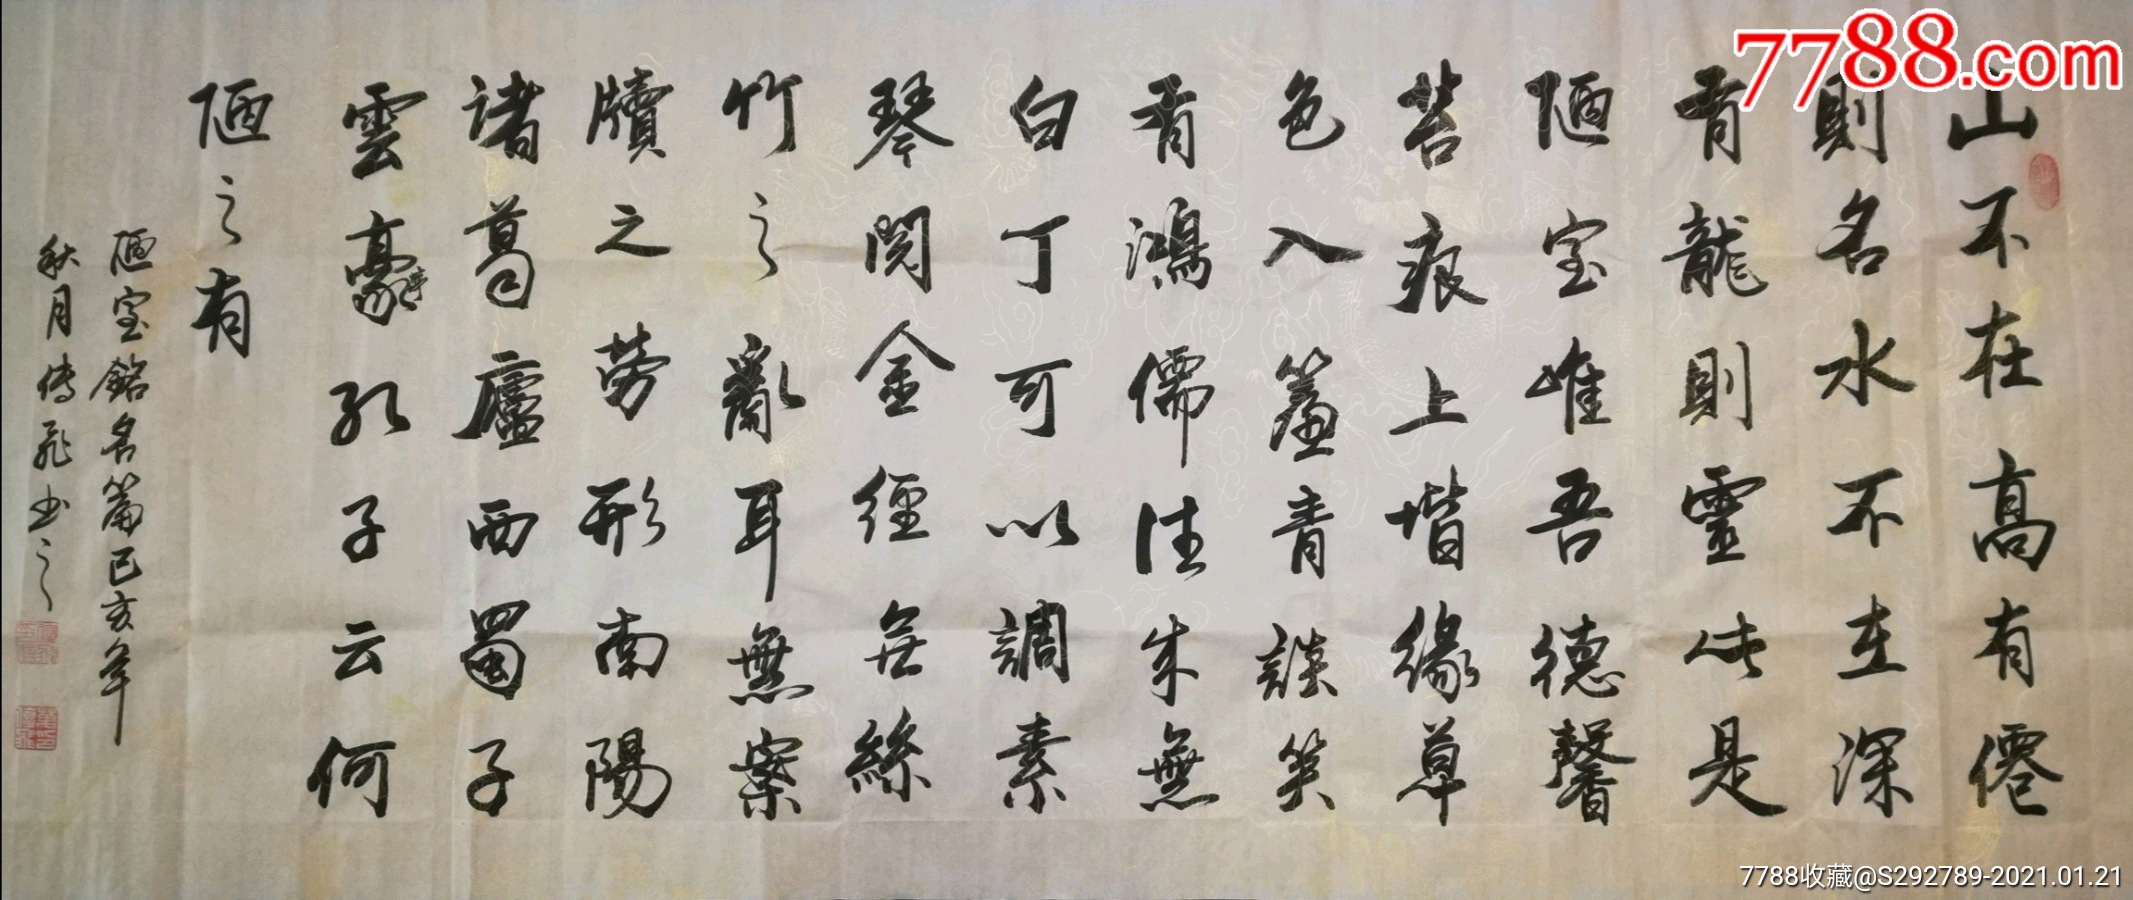 山不在高有僊
則名水不在深
有龍則靈此是
陋室惟吾德馨
苔痕上堦緣草
色入簾青談笑
有鴻儒往来無
白丁可以調素
琴閱金經無絲
竹之亂耳無案
牘之勞形南陽
諸葛廬西蜀子
雲豪亭孔子云何
陋之有
陋室銘名篇己亥年
秋月傳飛书之
7788.com
7788收藏@S292789-2021.01.21